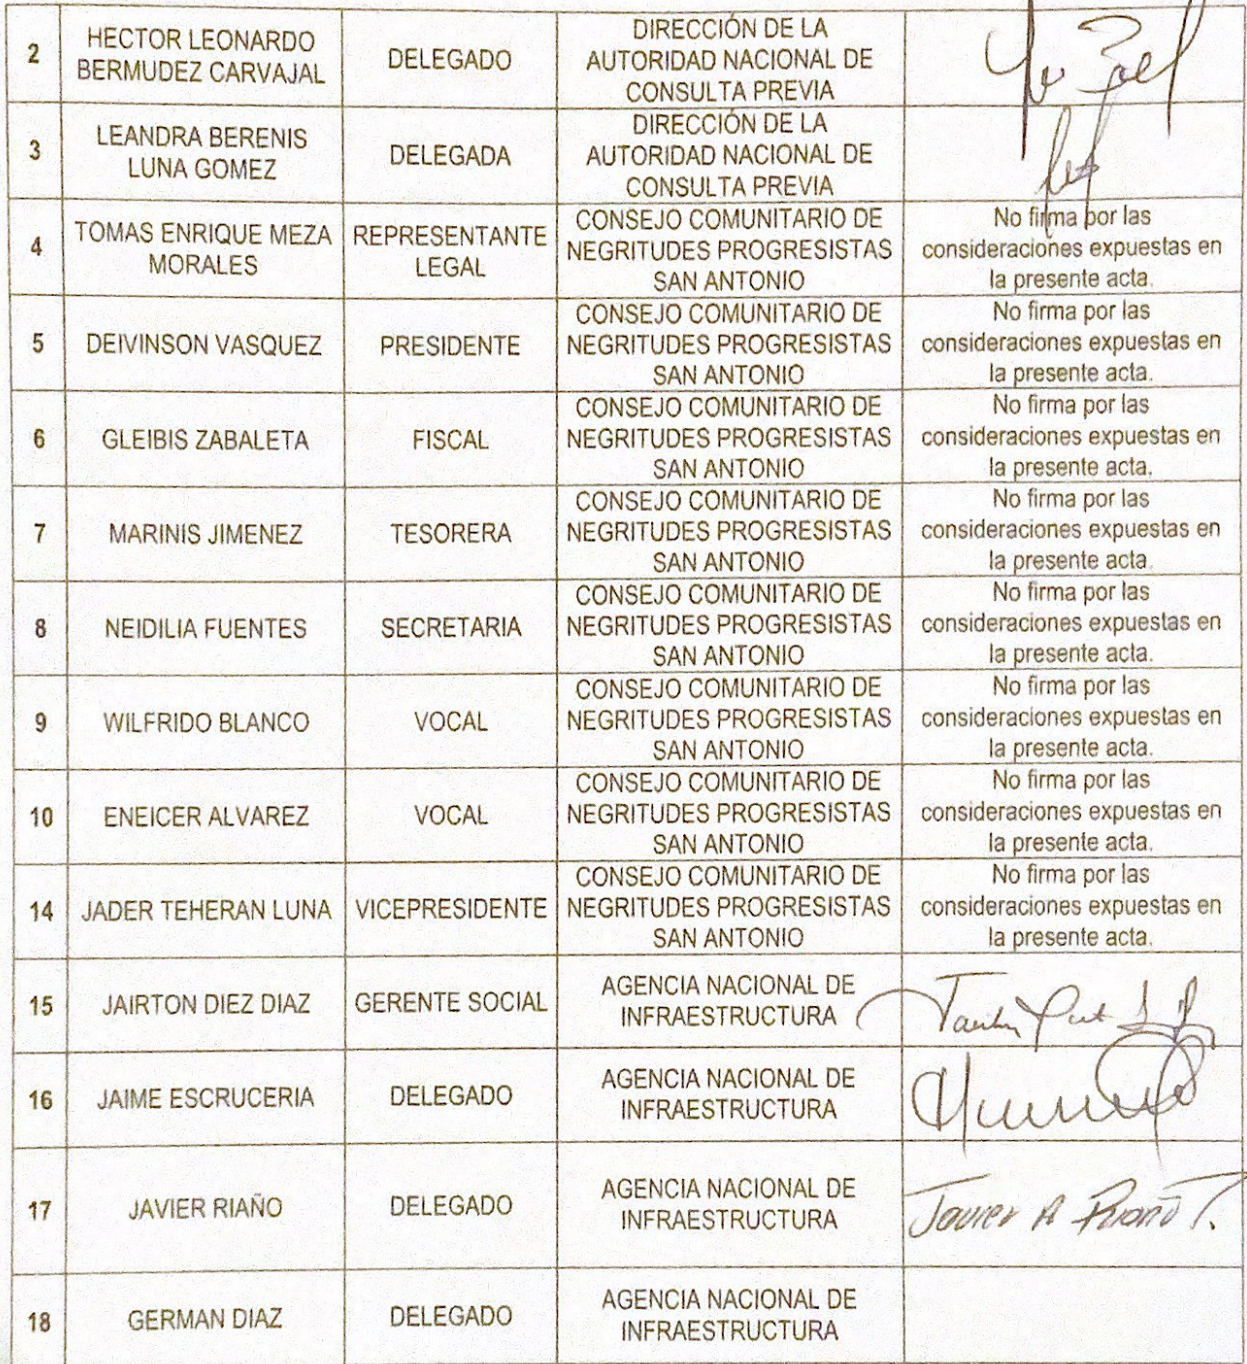 2
HECTOR LEONARDO
BERMUDEZ CARVAJAL
DELEGADO
DIRECCIÓN DE LA
AUTORIDAD NACIONAL DE
CONSULTA PREVIA
3
LEANDRA BERENIS
LUNA GOMEZ
DELEGADA
DIRECCIÓN DE LA
AUTORIDAD NACIONAL DE
CONSULTA PREVIA
4
TOMAS ENRIQUE MEZA
MORALES
REPRESENTANTE
LEGAL
CONSEJO COMUNITARIO DE
NEGRITUDES PROGRESISTAS
SAN ANTONIO
No firma por las
consideraciones expuestas en
la presente acta.
5
DEIVINSON VASQUEZ
PRESIDENTE
CONSEJO COMUNITARIO DE
NEGRITUDES PROGRESISTAS
SAN ANTONIO
No firma por las
consideraciones expuestas en
la presente acta.
6
GLEIBIS ZABALETA
FISCAL
CONSEJO COMUNITARIO DE
NEGRITUDES PROGRESISTAS
SAN ANTONIO
No firma por las
consideraciones expuestas en
la presente acta.
7
MARINIS JIMENEZ
TESORERA
CONSEJO COMUNITARIO DE
NEGRITUDES PROGRESISTAS
SAN ANTONIO
No firma por las
consideraciones expuestas en
la presente acta.
8
NEIDILIA FUENTES
SECRETARIA
CONSEJO COMUNITARIO DE
NEGRITUDES PROGRESISTAS
SAN ANTONIO
No firma por las
consideraciones expuestas en
la presente acta.
9
WILFRIDO BLANCO
VOCAL
CONSEJO COMUNITARIO DE
NEGRITUDES PROGRESISTAS
SAN ANTONIO
No firma por las
consideraciones expuestas en
la presente acta.
10
ENEICER ALVAREZ
VOCAL
CONSEJO COMUNITARIO DE
NEGRITUDES PROGRESISTAS
SAN ANTONIO
No firma por las
consideraciones expuestas en
la presente acta.
14
JADER TEHERAN LUNA
VICEPRESIDENTE
CONSEJO COMUNITARIO DE
NEGRITUDES PROGRESISTAS
SAN ANTONIO
No firma por las
consideraciones expuestas en
la presente acta.
15
JAIRTON DIEZ DIAZ
GERENTE SOCIAL
AGENCIA NACIONAL DE
INFRAESTRUCTURA
16
JAIME ESCRUCERIA
DELEGADO
AGENCIA NACIONAL DE
INFRAESTRUCTURA
17
JAVIER RIAÑO
DELEGADO
AGENCIA NACIONAL DE
INFRAESTRUCTURA
Javier A Riaño T.
18
GERMAN DIAZ
DELEGADO
AGENCIA NACIONAL DE
INFRAESTRUCTURA